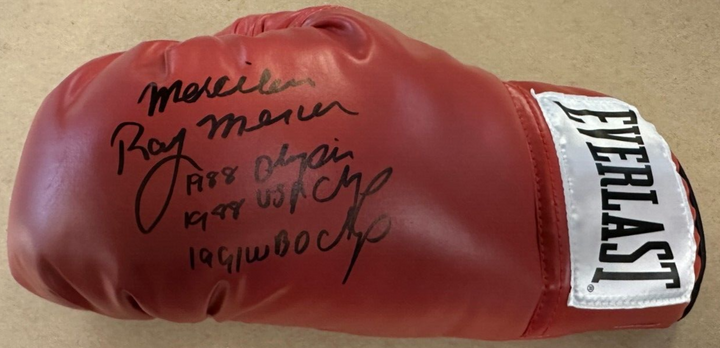 Merciless
Ray Mercer
1988 Olympic
1988 USA Chp
1991 WBO Chp
EVERLAST®